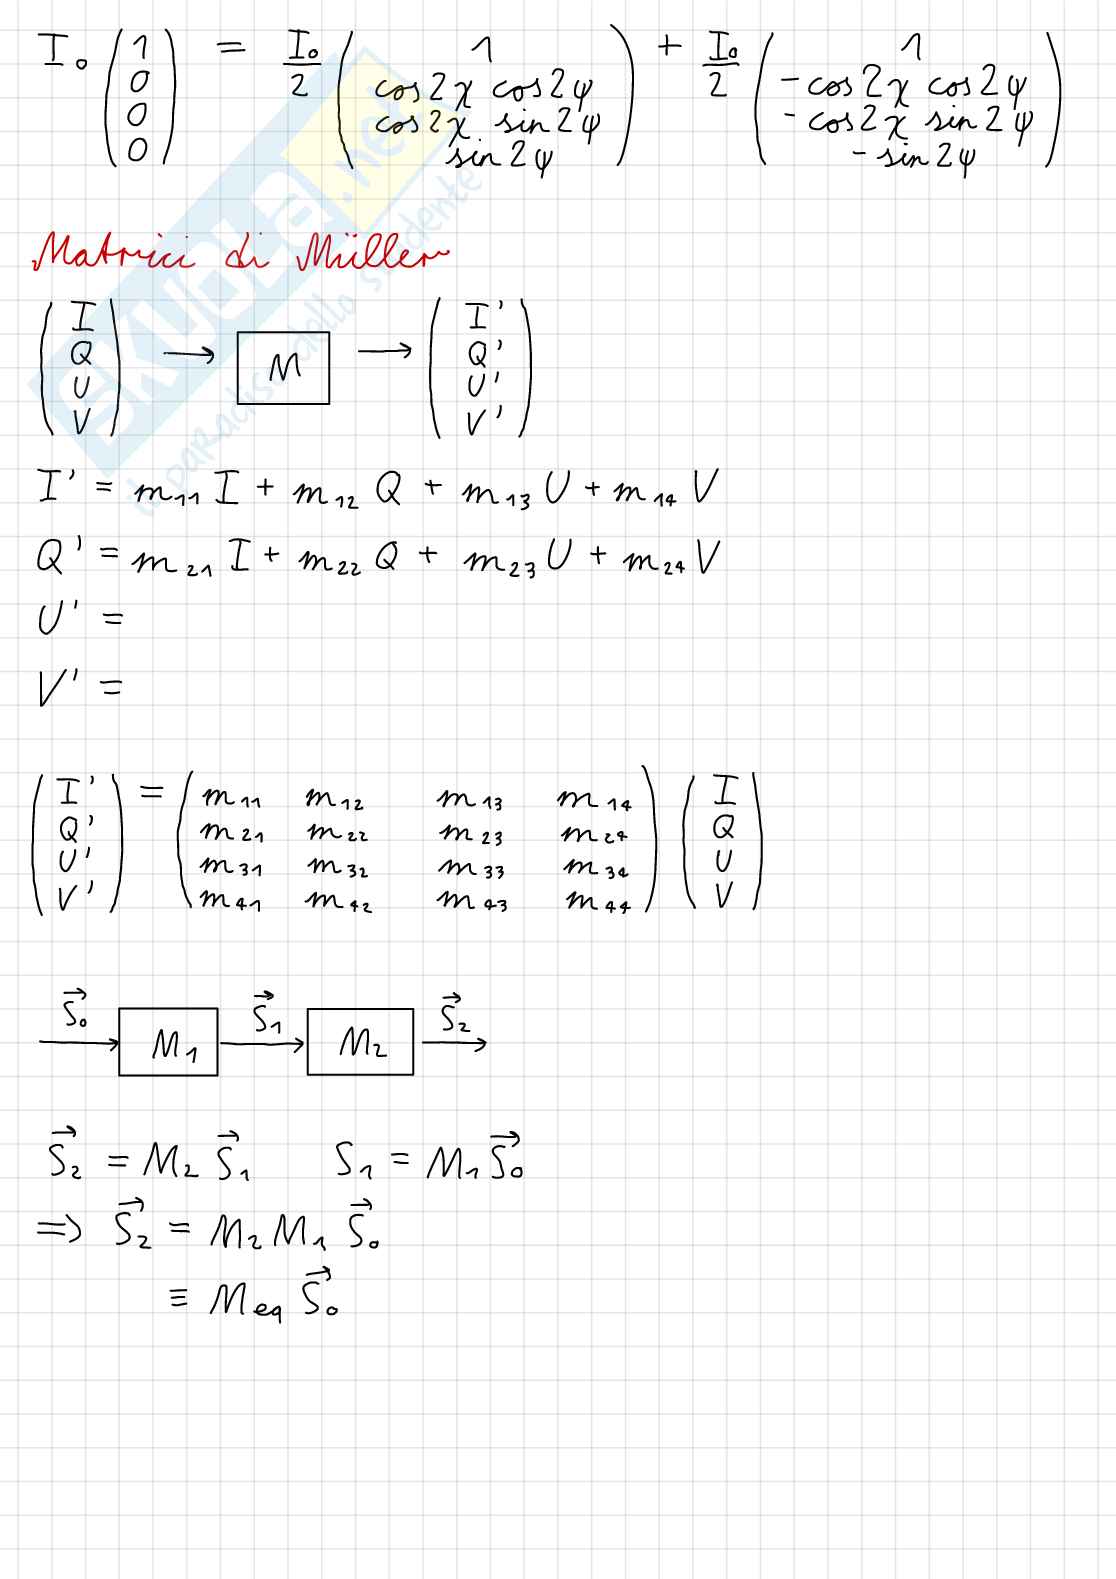 I₀ (1 0 0 0) = I₀/2 (1 cos2χ cos2ψ cos2χ sin2ψ sin2ψ) + I₀/2 (1 -cos2χ cos2ψ -cos2χ sin2ψ -sin2ψ)
Matrici di Müller
(I Q U V) → M → (I' Q' U' V')
I' = m₁₁ I + m₁₂ Q + m₁₃ U + m₁₄ V
Q' = m₂₁ I + m₂₂ Q + m₂₃ U + m₂₄ V
U' =
V' =
(I' Q' U' V') = (m₁₁ m₁₂ m₁₃ m₁₄
m₂₁ m₂₂ m₂₃ m₂₄
m₃₁ m₃₂ m₃₃ m₃₄
m₄₁ m₄₂ m₄₃ m₄₄) (I Q U V)
S⃗₀ M₁ S⃗₁ M₂ S⃗₂
S⃗₂ = M₂ S⃗₁ S₁ = M₁ S⃗₀
=> S⃗₂ = M₂ M₁ S⃗₀
≡ M_eq S⃗₀
SKUOLA.net